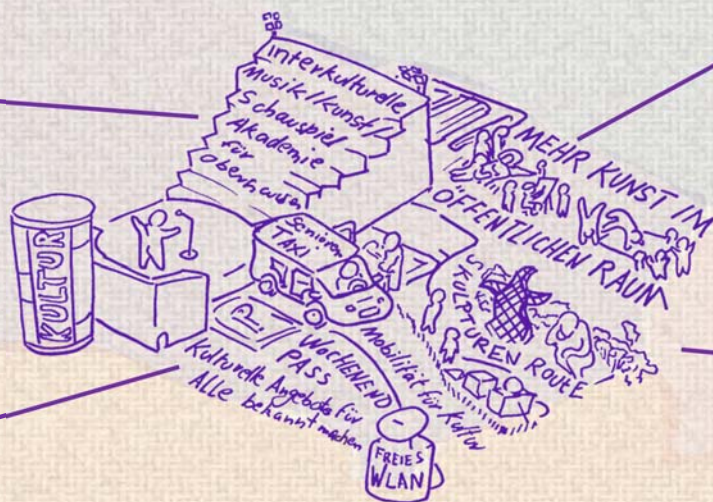 interkulturelle
Musik/Kunst/
Schauspiel
Akademie
für
Oberhausen
MEHR KUNST IM
ÖFFENTLICHEN RAUM
KULTUR
Senioren
TAXI
SKULPTUREN ROUTE
P
WOCHENEND
PASS
Mobilität für Kultur
Kulturelle Angebote für
Alle bekannt machen
FREIES
WLAN